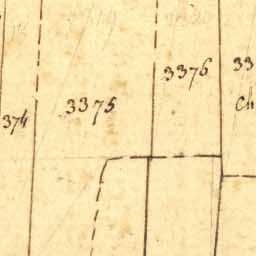 3376
33
3375
Ch
374